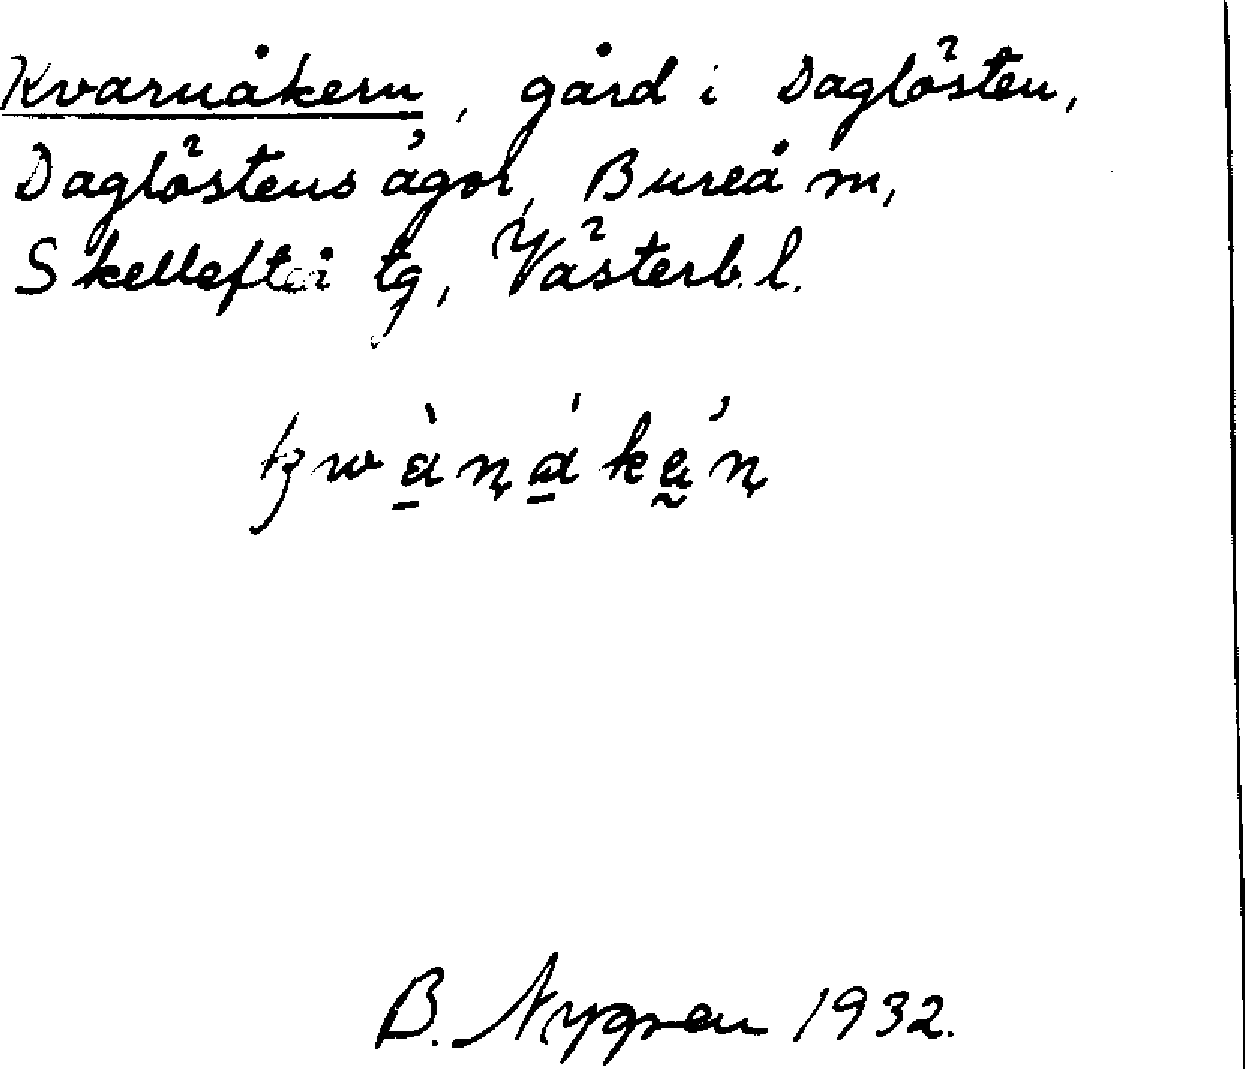 Kvarnåkern, gård i Daglösten,
Daglöstens ägor, Bureå m,
Skellefteå tg, Västerb. l.
B. Nygren 1932.